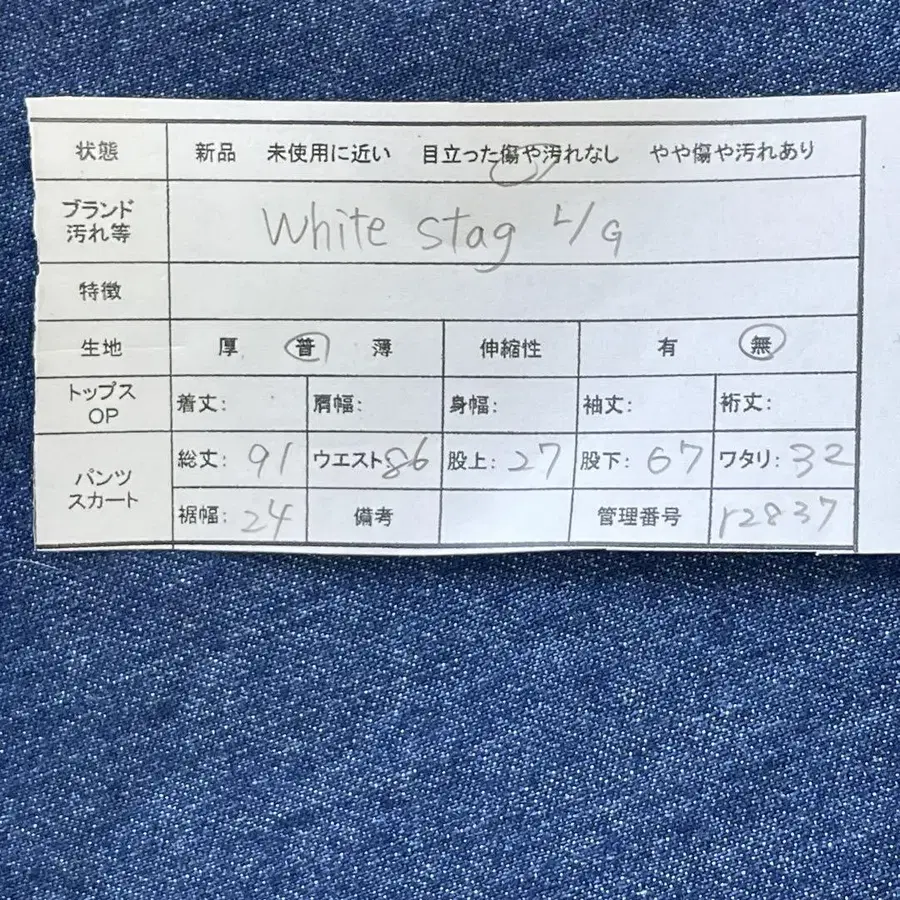 状態 新品 未使用に近い 目立った傷や汚れなし やや傷や汚れあり
ブランド
汚れ等
White Stag L/G
特徴
生地 厚 普 薄 伸縮性 有 無
トップス
OP
着丈: 肩幅: 身幅: 袖丈: 裄丈:
パンツ
スカート
総丈: 91 ウエスト 86 股上: 27 股下: 67 ワタリ: 32
裾幅: 24 備考 管理番号 r2837